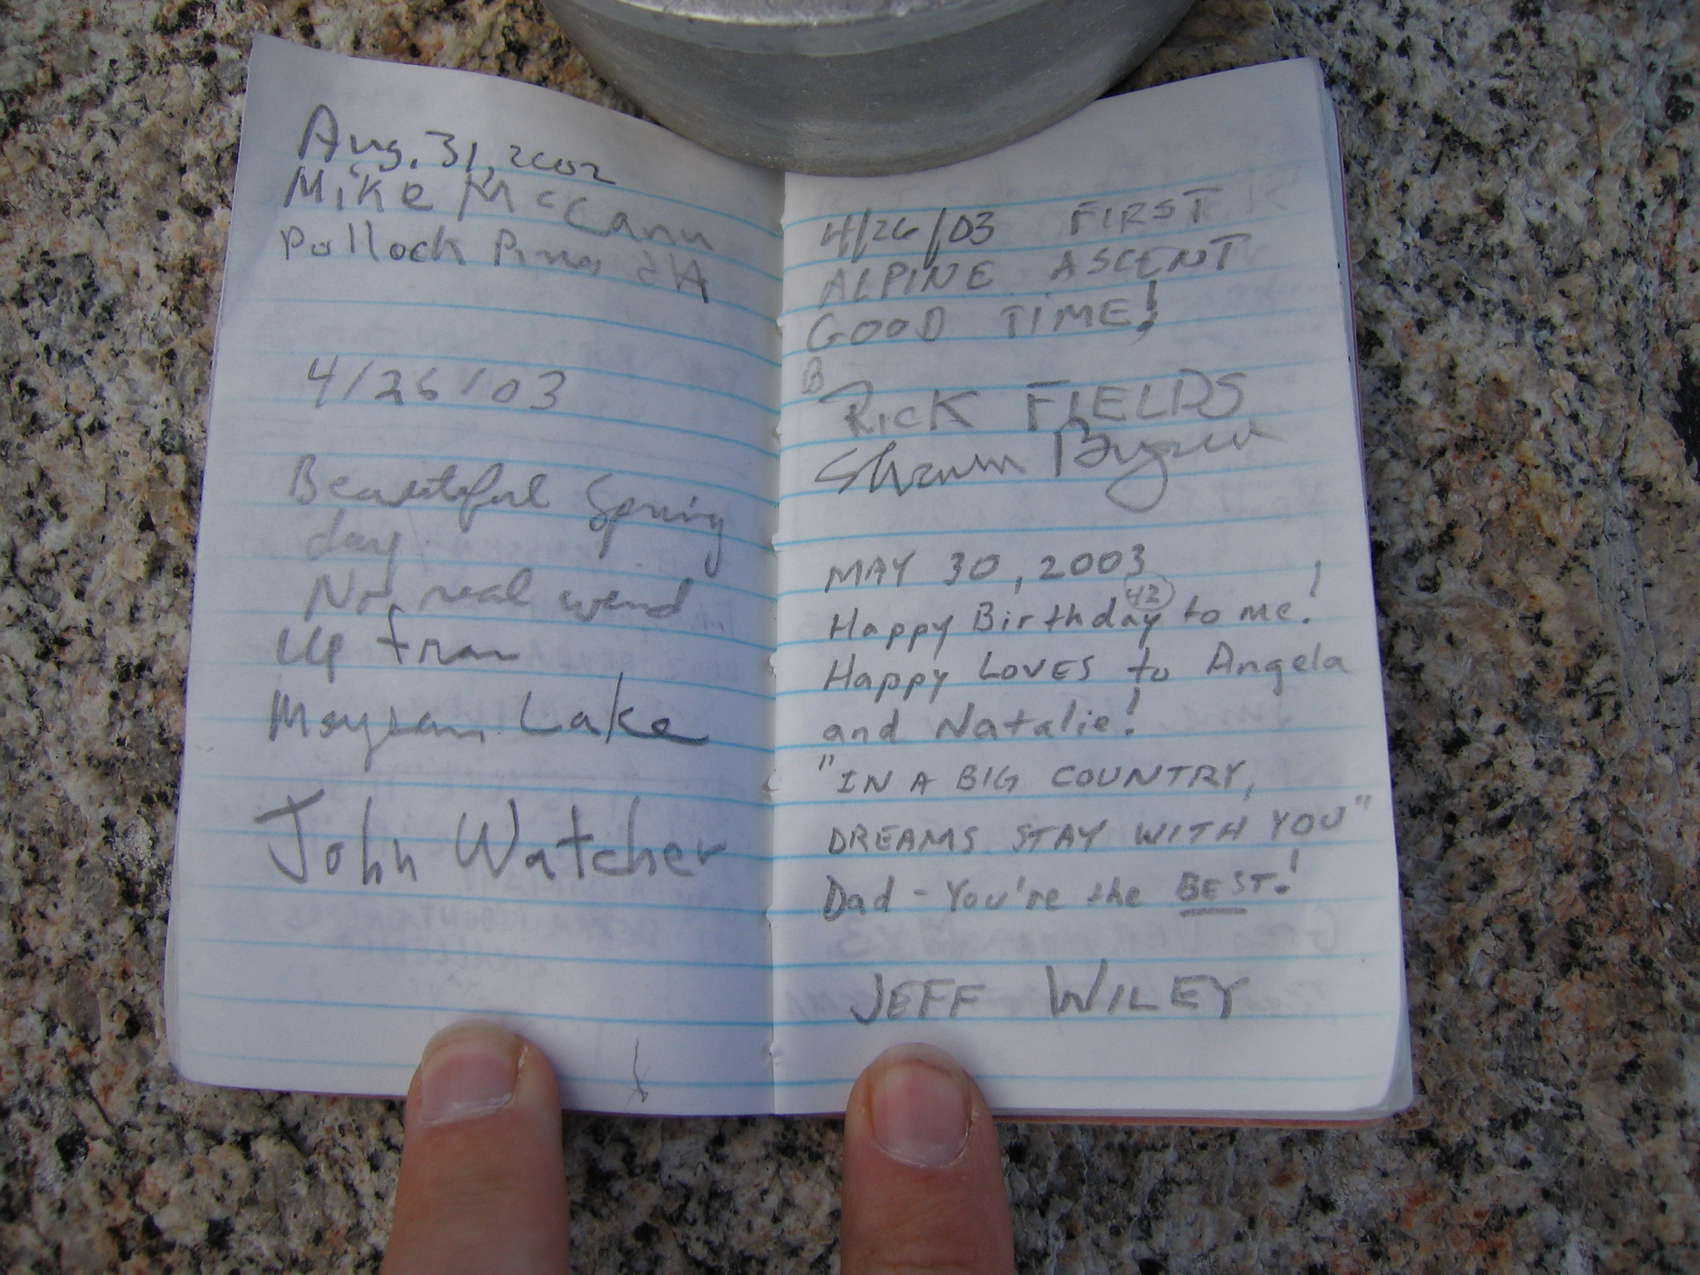 Aug. 31, 2002
Mike McCann
Pollock Pines CA
4/26/03
Beautiful Spring
day
No real wind
Up from
Meysan Lake
John Watcher
4/26/03 FIRST
ALPINE ASCENT
GOOD TIME!
B
RICK FIELDS
MAY 30, 2003
42
Happy Birthday to me!
Happy LOVES to Angela
and Natalie!
"IN A BIG COUNTRY,
DREAMS STAY WITH YOU"
Dad - You're the BEST!
JEFF WILEY